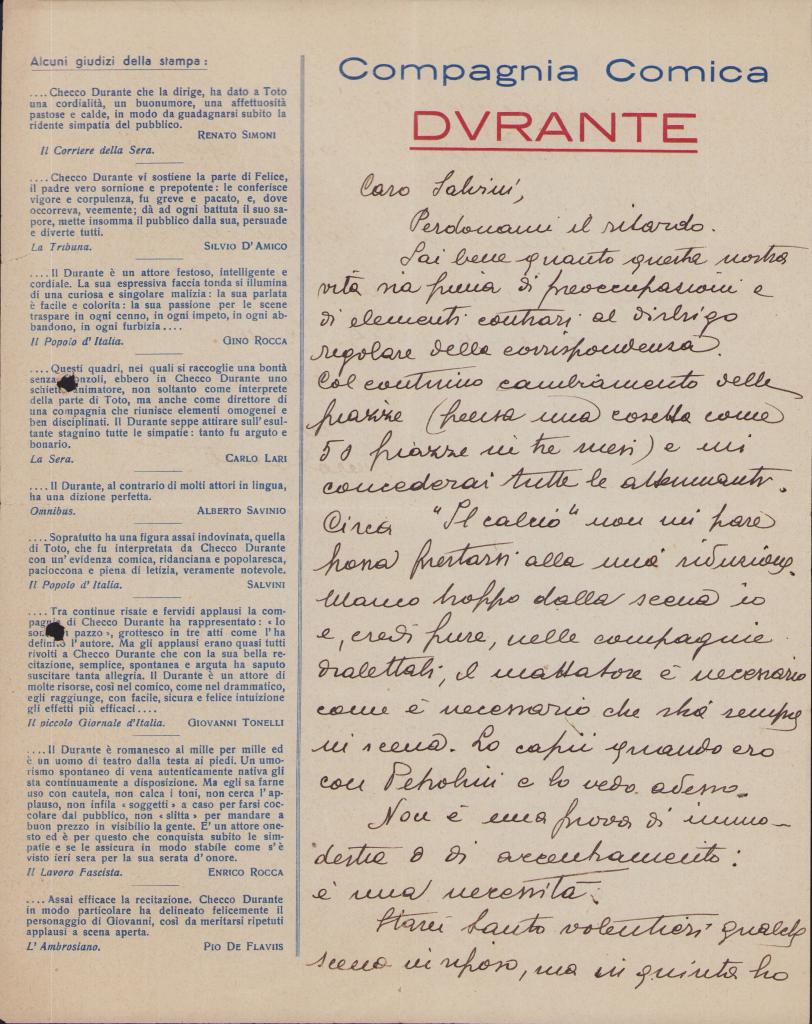 Alcuni giudizi della stampa :
.... Checco Durante che la dirige, ha dato a Toto
una cordialità, un buonumore, una affettuosità
pastose e calde, in modo da guadagnarsi subito la
ridente simpatia del pubblico.
RENATO SIMONI
Il Corriere della Sera.
.... Checco Durante vi sostiene la parte di Felice,
il padre vero sornione e prepotente : le conferisce
vigore e corpulenza, fu greve e pacato, e, dove
occorreva, veemente; dà ad ogni battuta il suo sa-
pore, mette insomma il pubblico dalla sua, persuade
e diverte tutti.
La Tribuna. SILVIO D'AMICO
.... Il Durante è un attore festoso, intelligente e
cordiale. La sua espressiva faccia tonda si illumina
di una curiosa e singolare malizia : la sua parlata
è facile e colorita : la sua passione per le scene
traspare in ogni cenno, in ogni impeto, in ogni ab-
bandono, in ogni furbizia ....
Il Popolo d' Italia. GINO ROCCA
.... Questi quadri, nei quali si raccoglie una bontà
senza fronzoli, ebbero in Checco Durante uno
schietto animatore, non soltanto come interprete
della parte di Toto, ma anche come direttore di
una compagnia che riunisce elementi omogenei e
ben disciplinati. Il Durante seppe attirare sull' esul-
tante stagnino tutte le simpatie : tanto fu arguto e
bonario.
La Sera. CARLO LARI
.... Il Durante, al contrario di molti attori in lingua,
ha una dizione perfetta.
Omnibus. ALBERTO SAVINIO
.... Sopratutto ha una figura assai indovinata, quella
di Toto, che fu interpretata da Checco Durante
con un' evidenza comica, ridanciana e popolaresca,
pacioccona e piena di letizia, veramente notevole.
Il Popolo d' Italia. SALVINI
.... Tra continue risate e fervidi applausi la com-
pagnia di Checco Durante ha rappresentato : « Io
sono un pazzo », grottesco in tre atti come l' ha
definito l' autore. Ma gli applausi erano quasi tutti
rivolti a Checco Durante che con la sua bella re-
citazione, semplice, spontanea e arguta ha saputo
suscitare tanta allegria. Il Durante è un attore di
molte risorse, così nel comico, come nel drammatico,
egli raggiunge, con facile, sicura e felice intuizione
gli effetti più efficaci ....
Il piccolo Giornale d'Italia. GIOVANNI TONELLI
.... Il Durante è romanesco al mille per mille ed
è un uomo di teatro dalla testa ai piedi. Un umo-
rismo spontaneo di vena autenticamente nativa gli
sta continuamente a disposizione. Ma egli sa farne
uso con cautela, non calca i toni, non cerca l' ap-
plauso, non infila « soggetti » a caso per farsi coc-
colare dal pubblico, non « slitta » per mandare a
buon prezzo in visibilio la gente. E' un attore one-
sto ed è per questo che conquista subito le sim-
patie e se le assicura in modo stabile come s' è
visto ieri sera per la sua serata d' onore.
Il Lavoro Fascista. ENRICO ROCCA
.... Assai efficace la recitazione. Checco Durante
in modo particolare ha delineato felicemente il
personaggio di Giovanni, così da meritarsi ripetuti
applausi a scena aperta.
L' Ambrosiano. PIO DE FLAVIIS
Compagnia Comica
DVRANTE
Caro Salvini,
Perdonami il ritardo.
Sai bene quanto questa nostra
vita sia piena di preoccupazioni e
di elementi contrari al disbrigo
regolare della corrispondenza.
Col continuo cambiamento delle
piazze (pensa una cosetta come
50 piazze in tre mesi) e mi
concederai tutte le attenuanti.
Circa "Il calcio" non mi pare
possa prestarsi alla mia riduzione.
Manco troppo dalla scena io
e, credi pure, nelle compagnie
dialettali, il mattatore è necessario
come è necessario che stia sempre
in scena. Lo capii quando ero
con Petrolini e lo vedo adesso.
Non è una prova di immo-
destia o di accentramento :
è una necessità.
Starei tanto volentieri qualche
scena in riposo, ma in quinta ho